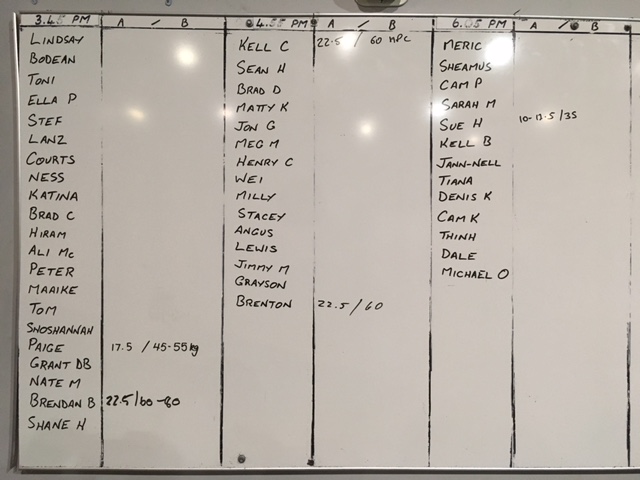 3.45 PM A / B
LINDSAY
BODEAN
TONI
ELLA P
STEF
LANZ
COURTS
NESS
KATINA
BRAD C
HIRAM
ALI Mc
PETER
MAAIKE
TOM
SHOSHANNAH
PAIGE 17.5 / 45-55kg
GRANT DB
NATE M
BRENDAN B 22.5/60-80
SHANE H
4.55 PM A / B
KELL C 22.5 / 60 HPC
SEAN H
BRAD D
MATTY K
JON G
MEG M
HENRY C
WEI
MILLY
STACEY
ANGUS
LEWIS
JIMMY M
GRAYSON
BRENTON 22.5 / 60
6.05 PM A / B
MERIC
SHEAMUS
CAM P
SARAH M
SUE H 10-12.5/35
KELL B
JANN-NELL
TIANA
DENIS K
CAM K
THINH
DALE
MICHAEL O